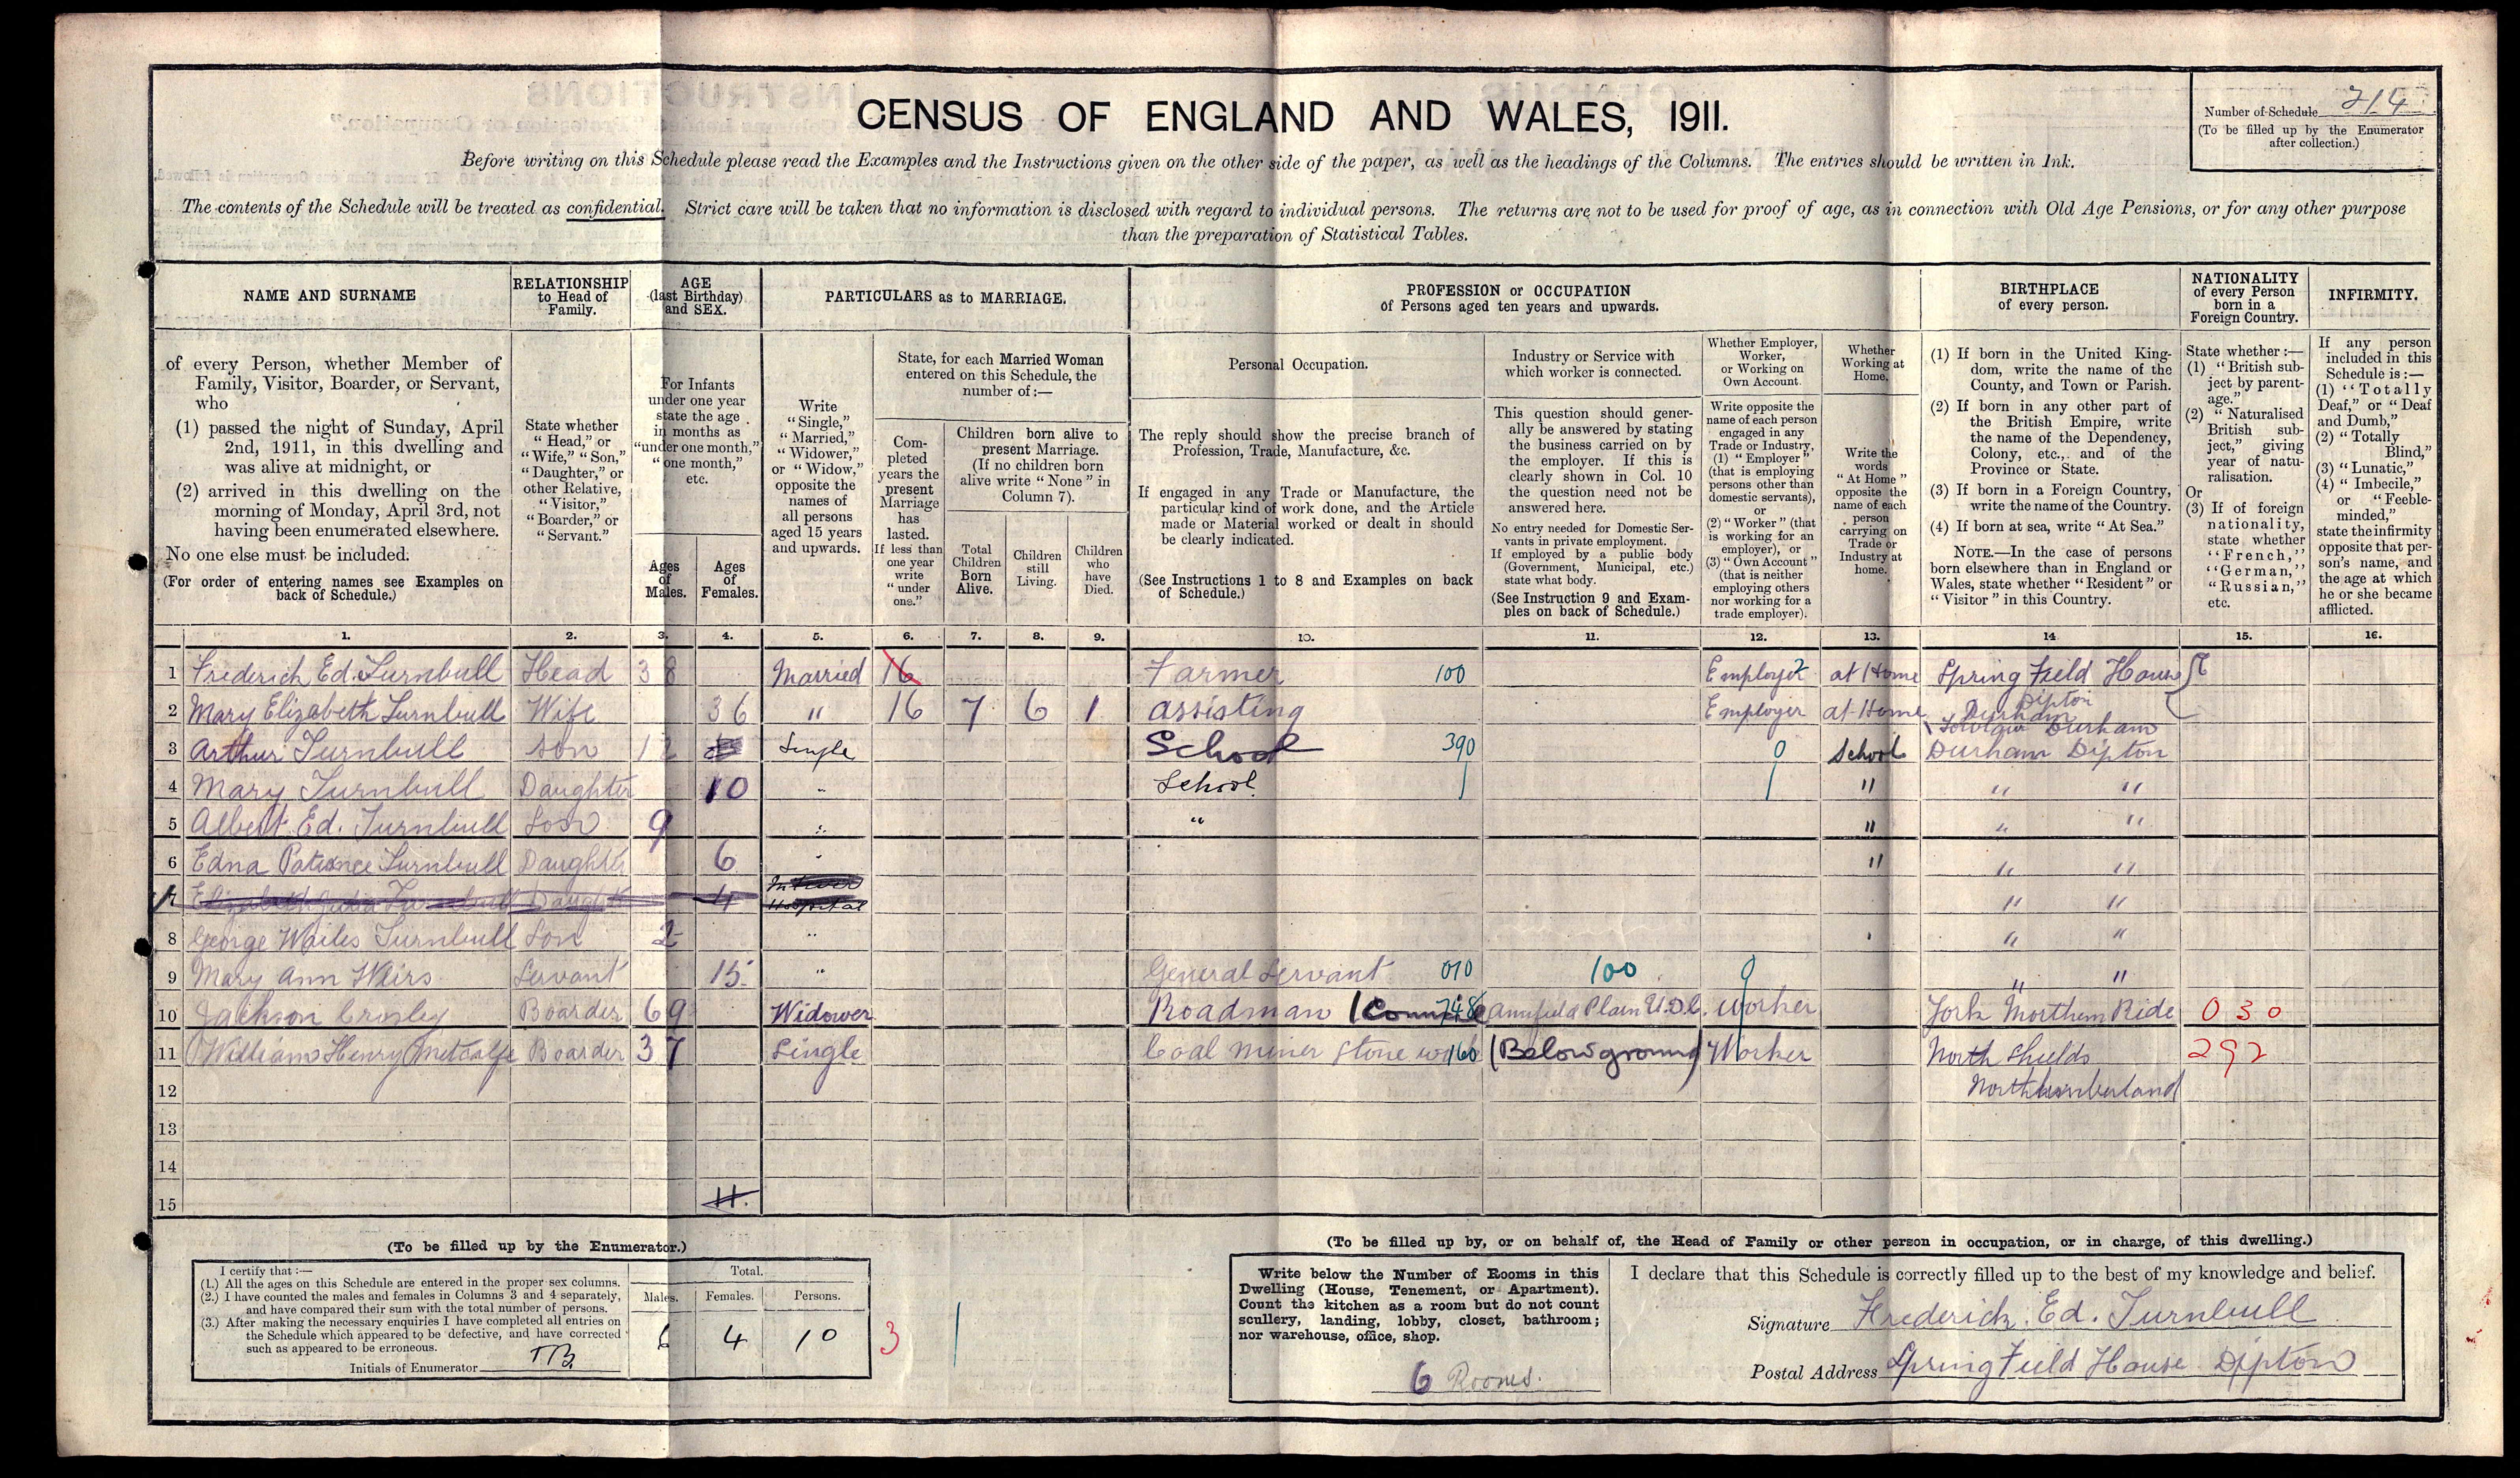 CENSUS OF ENGLAND AND WALES, 1911.
Number of Schedule 214
(To be filled up by the Enumerator
after collection.)
Before writing on this Schedule please read the Examples and the Instructions given on the other side of the paper, as well as the headings of the Columns. The entries should be written in Ink.
The contents of the Schedule will be treated as confidential. Strict care will be taken that no information is disclosed with regard to individual persons. The returns are not to be used for proof of age, as in connection with Old Age Pensions, or for any other purpose
than the preparation of Statistical Tables.
NAME AND SURNAME
of every Person, whether Member of
Family, Visitor, Boarder, or Servant,
who
(1) passed the night of Sunday, April
2nd, 1911, in this dwelling and
was alive at midnight, or
(2) arrived in this dwelling on the
morning of Monday, April 3rd, not
having been enumerated elsewhere.
No one else must be included.
(For order of entering names see Examples on
back of Schedule.)
RELATIONSHIP
to Head of
Family.
State whether
"Head," or
"Wife," "Son,"
"Daughter," or
other Relative,
"Visitor,"
"Boarder," or
"Servant."
AGE
(last Birthday)
and SEX.
For Infants
under one year
state the age
in months as
"under one month,"
"one month,"
etc.
Ages
of
Males.
Ages
of
Females.
PARTICULARS as to MARRIAGE.
Write
"Single,"
"Married,"
"Widower,"
or "Widow,"
opposite the
names of
all persons
aged 15 years
and upwards.
State, for each Married Woman
entered on this Schedule, the
number of:—
Com-
pleted
years the
present
Marriage
has
lasted.
If less than
one year
write
"under
one."
Children born alive to
present Marriage.
(If no children born
alive write "None" in
Column 7).
Total
Children
Born
Alive.
Children
still
Living.
Children
who
have
Died.
PROFESSION or OCCUPATION
of Persons aged ten years and upwards.
Personal Occupation.
The reply should show the precise branch of
Profession, Trade, Manufacture, &c.
If engaged in any Trade or Manufacture, the
particular kind of work done, and the Article
made or Material worked or dealt in should
be clearly indicated.
(See Instructions 1 to 8 and Examples on back
of Schedule.)
Industry or Service with
which worker is connected.
This question should gener-
ally be answered by stating
the business carried on by
the employer. If this is
clearly shown in Col. 10
the question need not be
answered here.
No entry needed for Domestic Ser-
vants in private employment.
If employed by a public body
(Government, Municipal, etc.)
state what body.
(See Instruction 9 and Exam-
ples on back of Schedule.)
Whether Employer,
Worker,
or Working on
Own Account.
Write opposite the
name of each person
engaged in any
Trade or Industry,
(1) "Employer"
(that is employing
persons other than
domestic servants),
or
(2) "Worker" (that
is working for an
employer), or
(3) "Own Account"
(that is neither
employing others
nor working for a
trade employer).
Whether
Working at
Home.
Write the
words
"At Home"
opposite the
name of each
person
carrying on
Trade or
Industry at
home.
BIRTHPLACE
of every person.
(1) If born in the United King-
dom, write the name of the
County, and Town or Parish.
(2) If born in any other part of
the British Empire, write
the name of the Dependency,
Colony, etc., and of the
Province or State.
(3) If born in a Foreign Country,
write the name of the Country.
(4) If born at sea, write "At Sea."
NOTE.—In the case of persons
born elsewhere than in England or
Wales, state whether "Resident" or
"Visitor" in this Country.
NATIONALITY
of every Person
born in a
Foreign Country.
State whether:—
(1) "British sub-
ject by parent-
age."
(2) "Naturalised
British sub-
ject," giving
year of natu-
ralisation.
Or
(3) If of foreign
nationality,
state whether
"French,"
"German,"
"Russian,"
etc.
INFIRMITY.
If any person
included in this
Schedule is:—
(1) "Totally
Deaf," or "Deaf
and Dumb,"
(2) "Totally
Blind,"
(3) "Lunatic,"
(4) "Imbecile,"
or "Feeble-
minded,"
state the infirmity
opposite that per-
son's name, and
the age at which
he or she became
afflicted.
1. 2. 3. 4. 5. 6. 7. 8. 9. 10. 11. 12. 13. 14 15. 16.
1 Frederick Ed. Turnbull Head 38 Married 16 Farmer 100 Employer 2 at Home Spring Field House
Dipton
2 Mary Elizabeth Turnbull Wife 36 " 16 7 6 1 assisting Employer at Home Durham
Durham
3 Arthur Turnbull Son 12 Single School 390 0 School Durham Dipton
4 Mary Turnbull Daughter 10 " School " " "
5 Albert Ed. Turnbull Son 9 " " " " "
6 Edna Patience Turnbull Daughter 6 " " " "
7 Elizabeth Turnbull Daughter 4 Hospital " "
8 George Wailes Turnbull Son 2 " " " "
9 Mary Ann Weirs Servant 15 " General Servant 010 100 9 " "
10 Jackson Crosley Boarder 69 Widower Roadman 748 Annfield Plain U.D.C. Worker York Northern Ride 030
11 William Henry Metcalfe Boarder 37 Single Coal miner stone work 160 (Below ground) Worker North Shields 292
12 Northumberland
13
14
15 11.
(To be filled up by the Enumerator.)
I certify that:—
(1.) All the ages on this Schedule are entered in the proper sex columns.
(2.) I have counted the males and females in Columns 3 and 4 separately,
and have compared their sum with the total number of persons.
(3.) After making the necessary enquiries I have completed all entries on
the Schedule which appeared to be defective, and have corrected
such as appeared to be erroneous.
Initials of Enumerator TB.
Total.
Males. Females. Persons.
6 4 10 3
(To be filled up by, or on behalf of, the Head of Family or other person in occupation, or in charge, of this dwelling.)
Write below the Number of Rooms in this
Dwelling (House, Tenement, or Apartment).
Count the kitchen as a room but do not count
scullery, landing, lobby, closet, bathroom;
nor warehouse, office, shop.
6 Rooms.
I declare that this Schedule is correctly filled up to the best of my knowledge and belief.
Signature Frederick. Ed. Turnbull
Postal Address Spring Field House Dipton